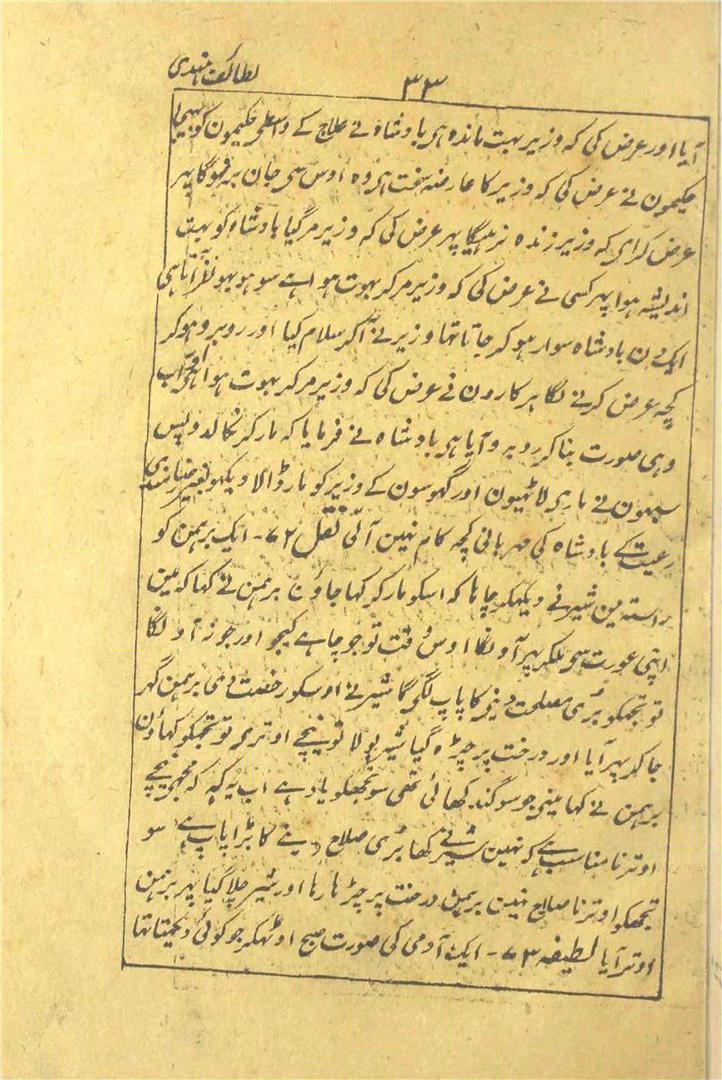 ۳۳ لطائف ہندی
آیا اور عرض کی کہ وزیر بہت ماندہ ہی بادشاہ نے علاج کے واسطی حکیمون کو بھیجا
حکیمون نے عرض کی کہ وزیر کا عارضہ سخت ہی وہ اوس سی جان بر نہوگا پھر
عرض کرائی کہ وزیر زندہ نرہیگا پہر عرض کی کہ وزیر مرگیا بادشاہ کو بہت
اندیشہ ہوا پہر کسی نے عرض کی کہ وزیر مرکر بہوت ہوا ہے سو ہو بہو نظر آتا ہی
ایک دن بادشاہ سوار ہو کر جاتا تہا وزیر نے آکر سلام کیا اور روبرو ہو کر
کچہ عرض کرنے لگا ہرکارون نے عرض کی کہ وزیر مرکر بہوت ہوا ہی اب
وہی صورت بناکر روبرو آیا ہی بادشاہ نے فرمایا کہ مار کر نکالدو پس
سبہون نے ماری لاٹہیون اور گہوسون کے وزیر کو مار ڈالا دیکہو بغیر رضامندی
رعیت کے بادشاہ کی مہربانی کچہ کام نہین آتی نقل ۷۲ - ایک برہمن کو
راستہ مین شیر نے دیکہکر چاہا کہ اسکو مار کر کہا جاؤن برہمن نے کہا کہ مین
اپنی عورت سی ملکر پہر آونگا اوس وقت تو جو چاہے کیجو اور جو نہ آونگا
تو تجہکو بُری مصلحت دینی کا پاپ لگی گا شیر نے اوسکو رخصت دی برہمن گہر
جاکر پہر آیا اور درخت پر چڑہ گیا شیر بولا تو نیچے اوتری تو تجہکو کہاؤن
برہمن نے کہا مینی جو سوگند کھائی تھی سو تجھکو یاد ہے اب یہ کہہ کہ مجہی نیچے
اوترنا مناسب ہے کہ نہین شیر نے کہا بُری صلاح دینے کا بڑا پاپ ہے سو
تجھکو اوترنا صلاح نہین برہمن درخت پر چڑہا رہا اور شیر چلا گیا پہر برہمن
اوتر آیا لطیفہ ۷۳ - ایک آدمی کی صورت صبح اوٹہکر جو کوئی دیکہتا تہا